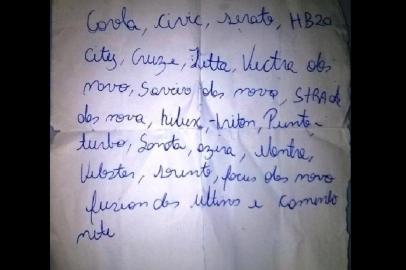 Corola, civic, serato, HB20
City, Cruze, Jetta, Vectra dos
novo, Saveiro dos novo, STRADA
dos nova, hilux, triton, Punto
turbo, Sonata, azera, elantra,
Veloster, sorento, focus dos novo
fuzion dos ultimo e caminhonete